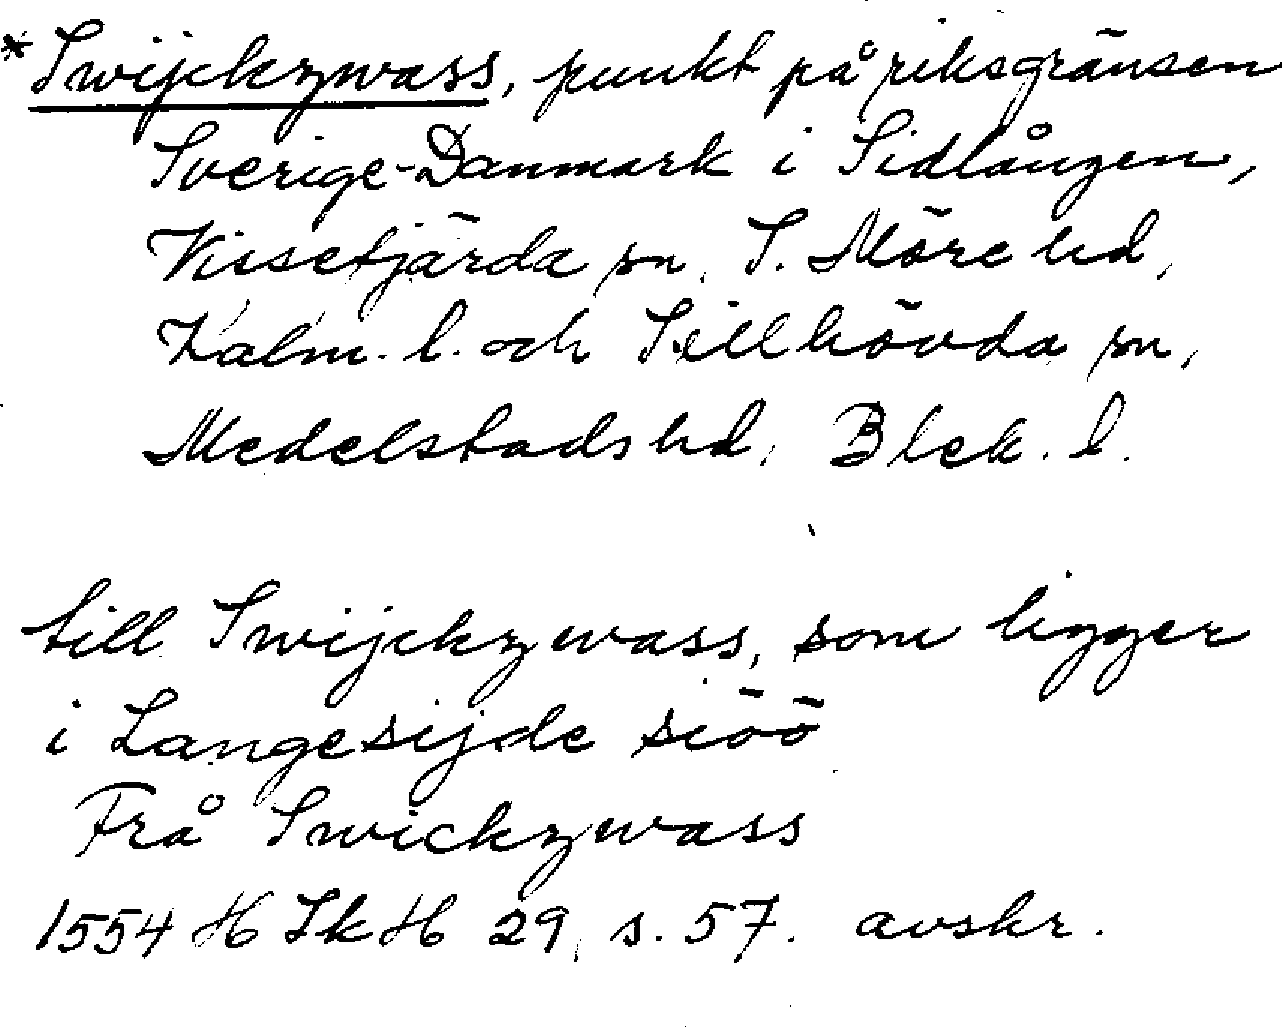 *Swijckzwass, punkt på riksgränsen
Sverige-Danmark i Sidlången,
Vissefjärda sn, S. Möre hd,
Kalm. l. och Sillhövda sn,
Medelstads hd, Blek. l.
till Swijckzwass, som ligger
i Langesijde siöö
Frå Swickzwass
1554 H SkH 29, s. 57. avskr.